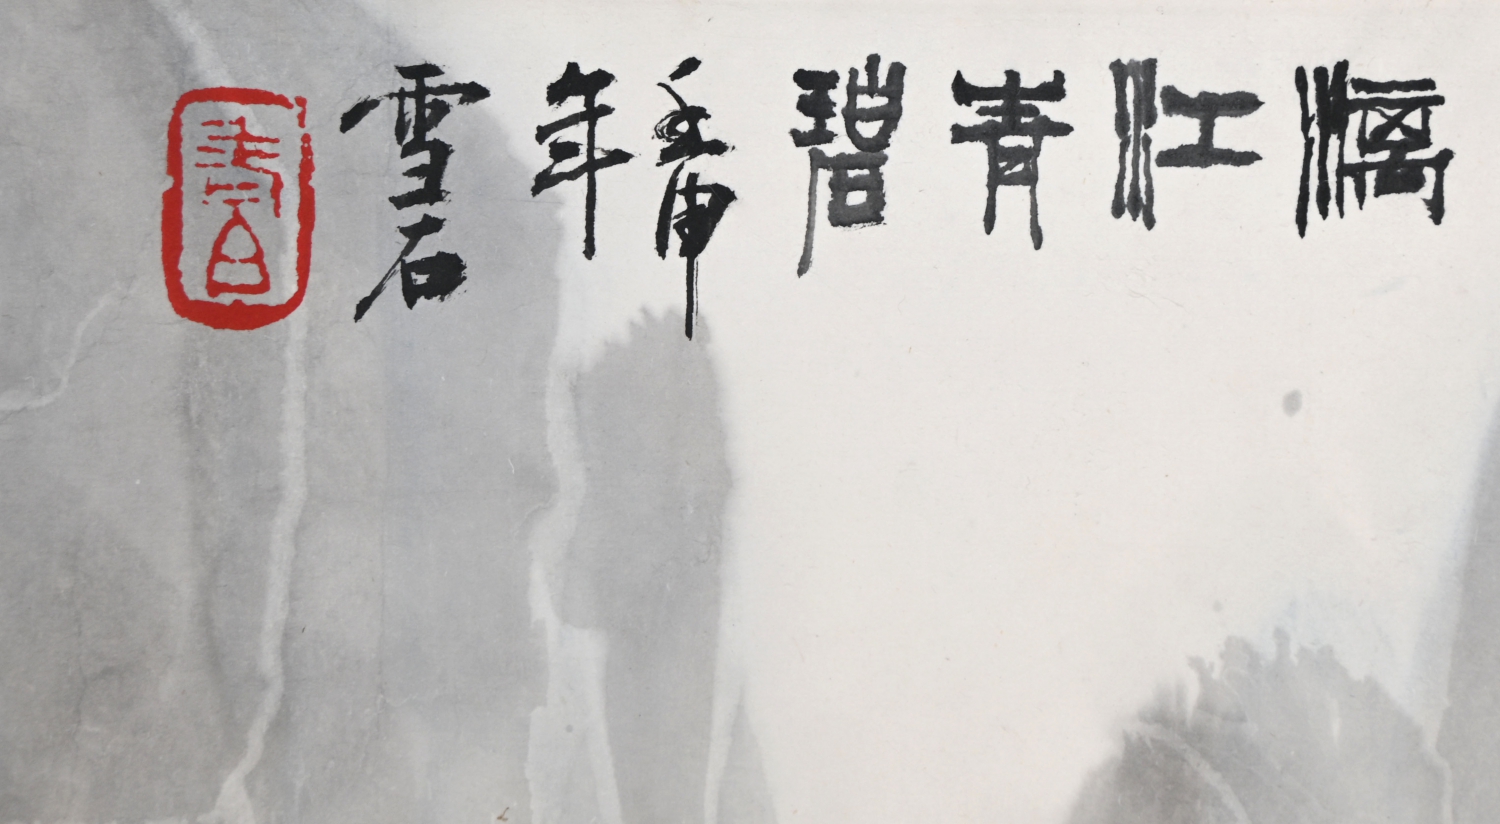 漓江青碧
壬申年
雪石